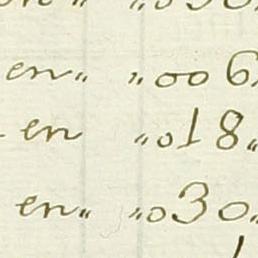 en„ „006„
en „018„
en„ „030„